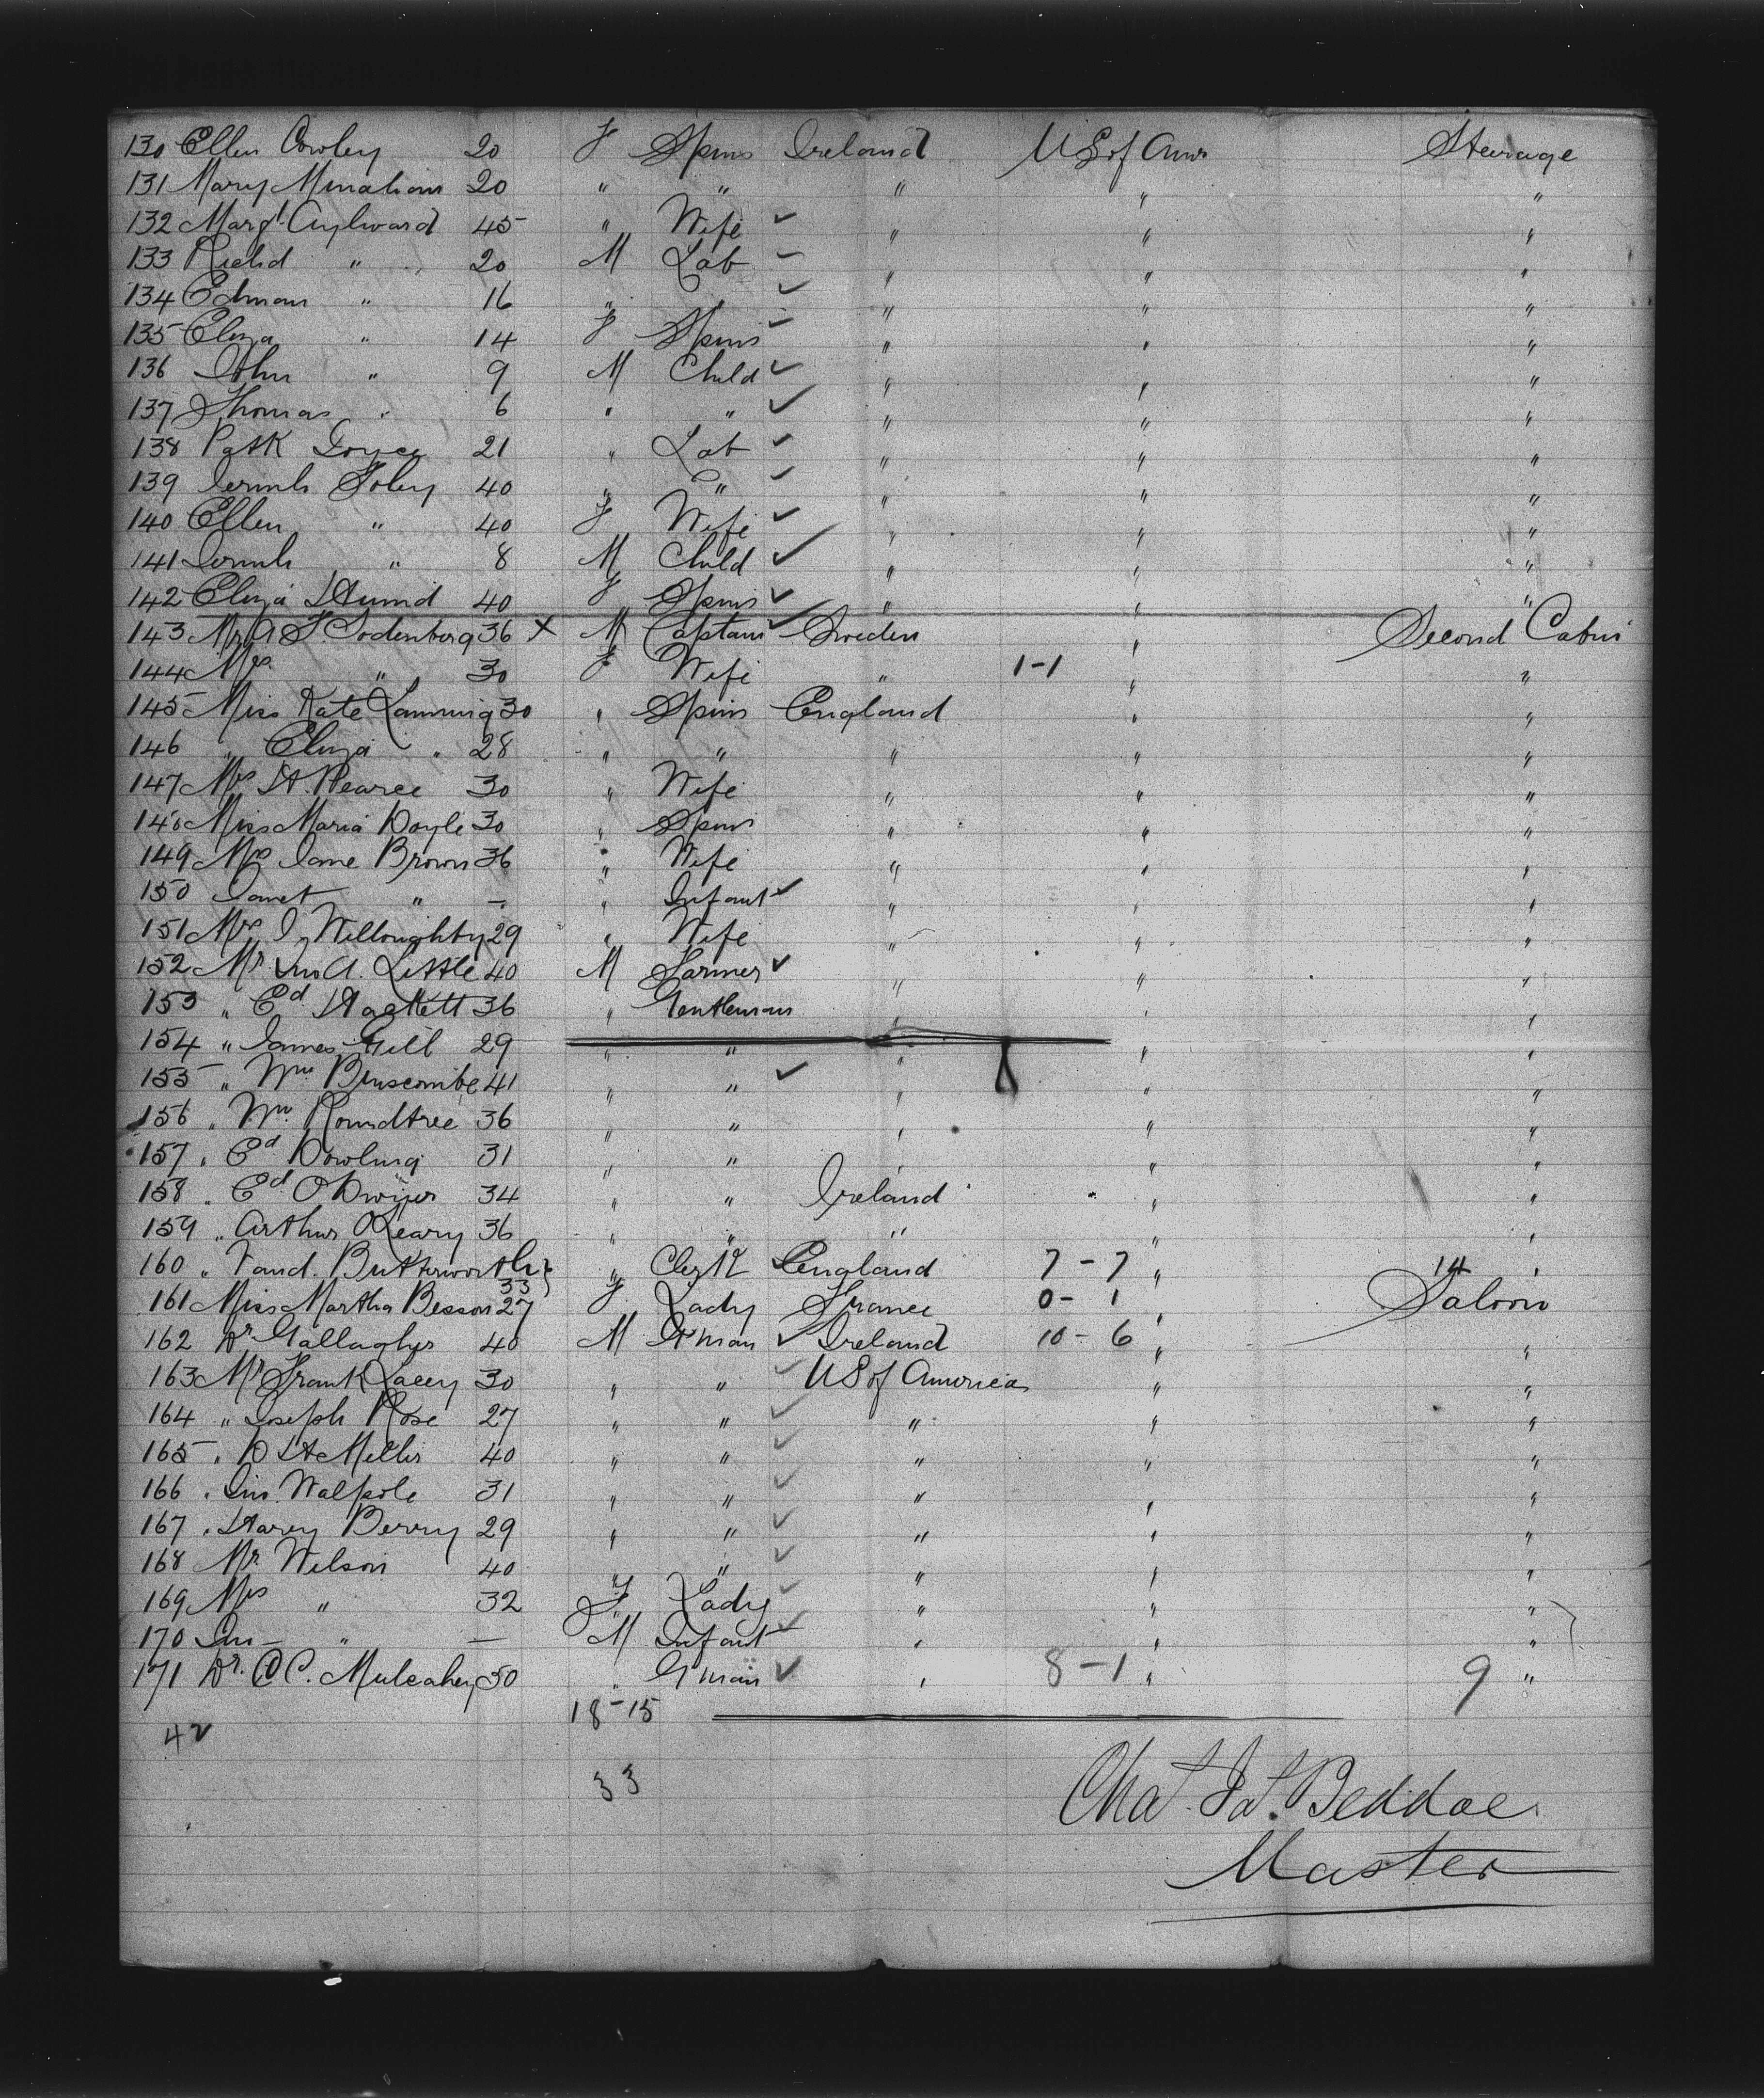 130 Ellen Cowley 20 F Spins Ireland US of Amr Steerage
131 Mary Minahan 20 " " " " "
132 Margt Aylward 45 " Wife " " "
133 Richd " 20 M Lab " " "
134 Edman " 16 " " " "
135 Eliza " 14 F Spins " " "
136 John " 9 M Child " " "
137 Thomas " 6 " " " " "
138 Patk Joyce 21 " Lab " " "
139 Jermh Foley 40 " " " " "
140 Ellen " 40 F Wife " " "
141 Jermh " 8 M Child " " "
142 Eliza 40 F Spins " " "
143 Mr A F. Sodenberg 36 X M Captain Sweden " Second Cabin
144 Mrs " 30 F Wife " 1-1 " "
145 Miss Kate Lamming 30 " Spins England " "
146 " Eliza " 28 " " " " "
147 Mrs H. Pearce 30 " Wife " " "
148 Miss Maria Doyle 30 " Spins " " "
149 Mrs Jane Brown 36 " Wife " " "
150 Janet " - " Infant " " "
151 Mrs J. Willoughby 29 " Wife " " "
152 Mr Jno A. Little 40 M Farmer " " "
153 " Ed Hackett 36 " Gentleman " " "
154 " James Gill 29 " " " " "
155 " Wm Binscombe 41 " " " " "
156 " Wm Roundtree 36 " " " " "
157 " Ed Dowling 31 " " " " "
158 " Ed O'Dwyer 34 " " Ireland " "
159 " Arthur O'Leary 36 " " " " "
160 " Butterworth 33 " Clerk England 7-7 " 14 "
161 Miss Martha Besson 27 F Lady France 0-1 " Saloon
162 Dr Gallagher 40 M G'man Ireland 10-6 " "
163 Mr Frank Lacey 30 " " US of America " "
164 " Joseph Rose 27 " " " " "
165 " D H Miller 40 " " " " "
166 " Jno. Walpole 31 " " " " "
167 " Harry Berry 29 " " " " "
168 Mr Wilson 40 " " " " "
169 Mrs " 32 F Lady " " "
170 Jno " - M Infant " " "
171 Dr. C C. Mulcahey 50 " G'man " 8-1 " 9 "
18-15
42
33
Chas. Js. Beddoe
Master